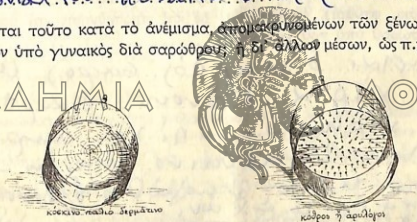 ται τοῦτο κατὰ τὸ ἀνέμισμα, ἀπομακρυνομένων τῶν ξένω
ν ὑπὸ γυναικὸς διὰ σαρώθρου; ἢ δι' ἄλλων μέσων, ὡς π.
ΔΗΜΙΑ ΑΘ
κόσκινο παλιὸ δερμάτινο
κόθρος ἢ ἀριλόγος